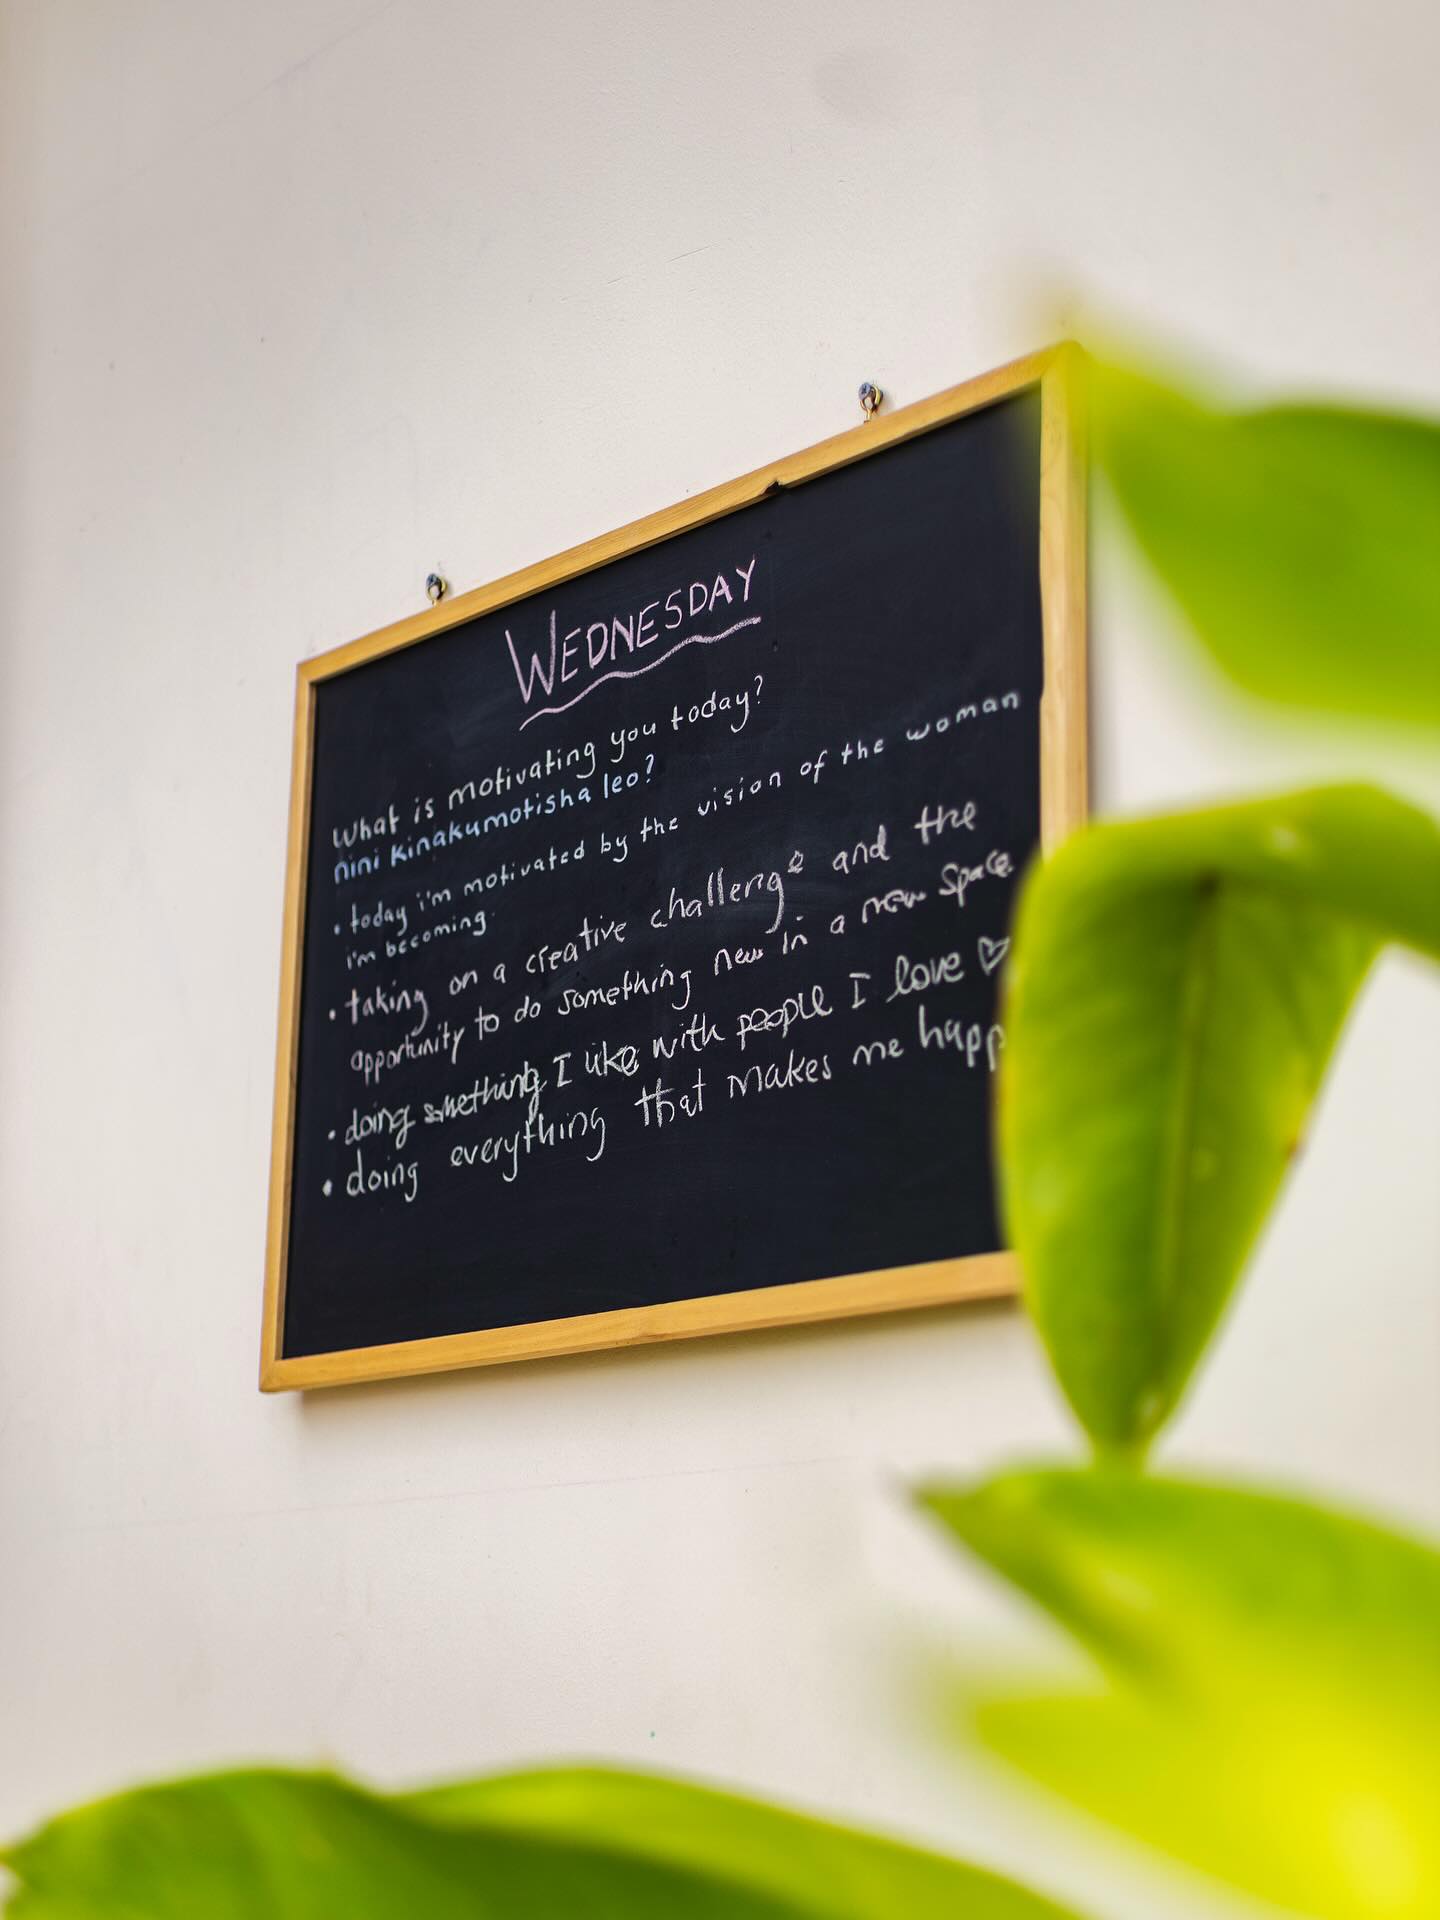 WEDNESDAY
What is motivating you today?
nini kinakumotisha leo?
• today i'm motivated by the vision of the woman
i'm becoming.
• taking on a creative challenge and the
opportunity to do something new in a new space
• doing something I like with people I love ♡
• doing everything that makes me happ